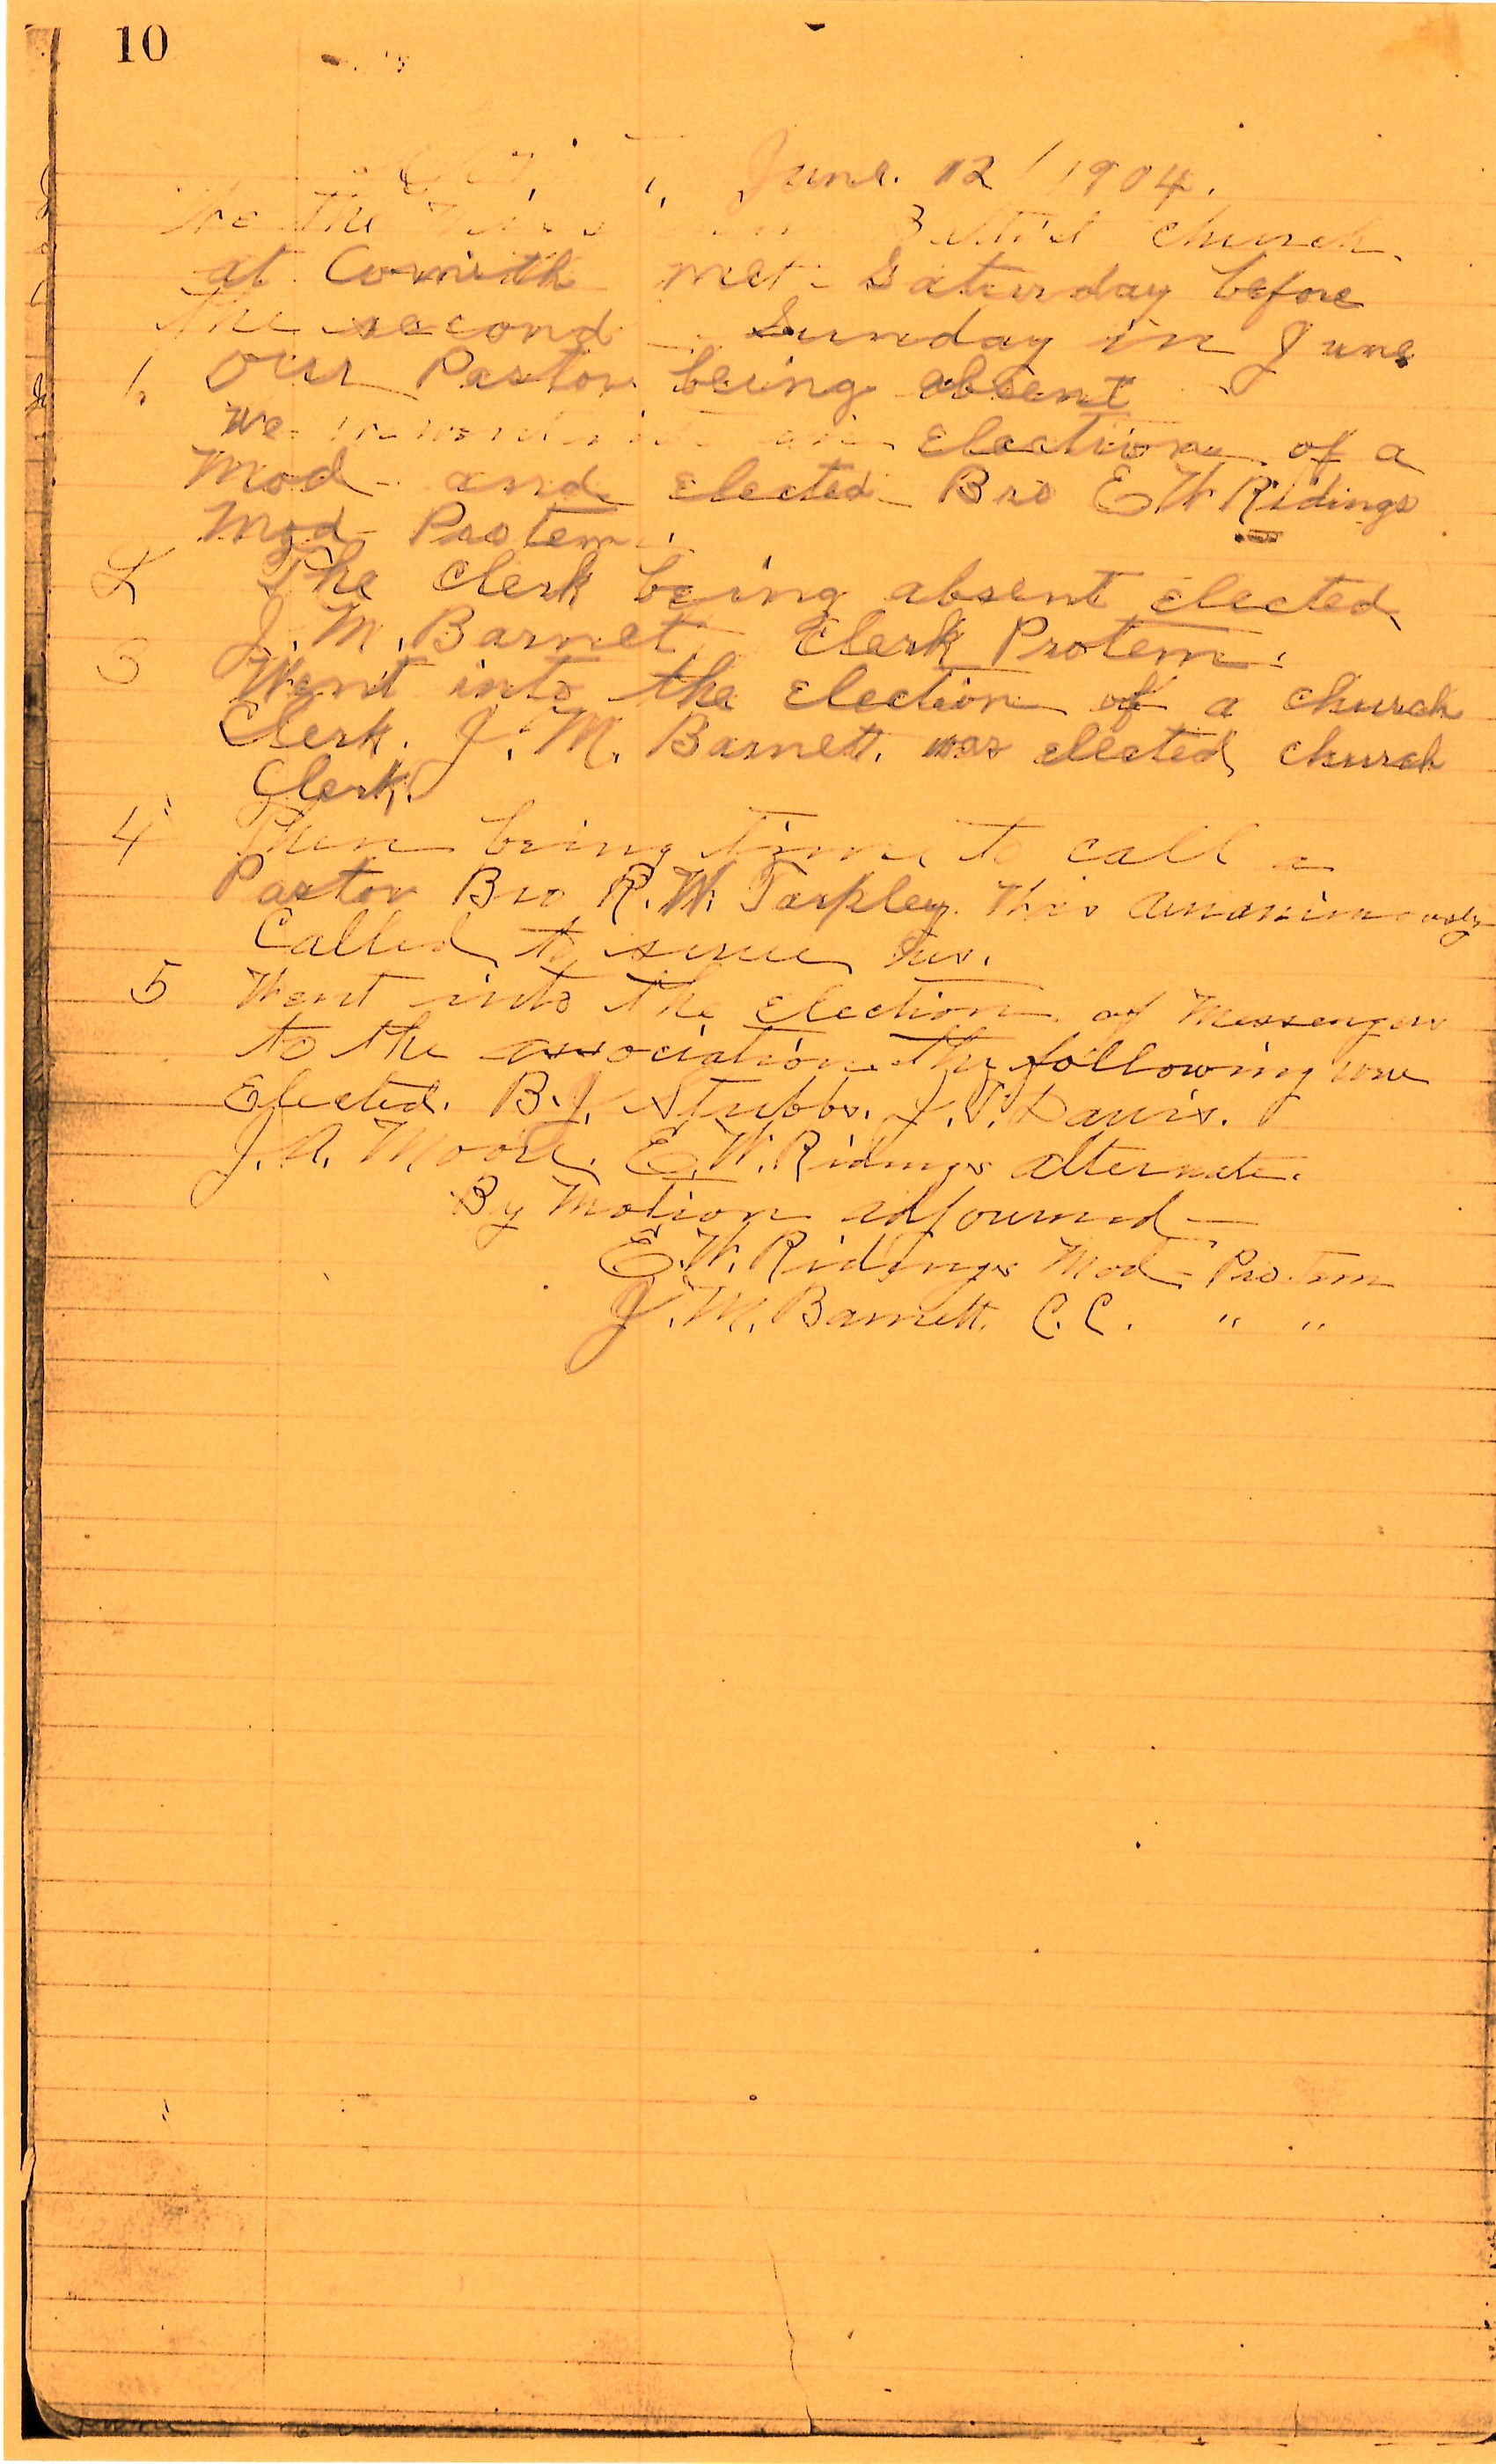 10
June. 12 / 1904.
We the church
at Corinth met Saturday before
the second Sunday in June
1. Our Pastor being absent
We election of a
Mod - and elected Bro E W Ridings
Mod - Protem.
2 The Clerk being absent elected
J. M. Barnet Clerk Protem.
3 Went into the election of a church
Clerk. J. M. Barnett. was elected church
Clerk.
4 Then being time to call a
Pastor Bro R. W. Tarpley. was ananimously
Called to serve us.
5 Went into the election of Messengers
to the association the following were
Elected. B. J. Stubbs. J. T. Davis.
J. A. Moore. E. W. Ridings alternate.
By Motion adjourned
E. W. Ridings Mod - Pro. Tem
J. M. Barnett. C. C. " "